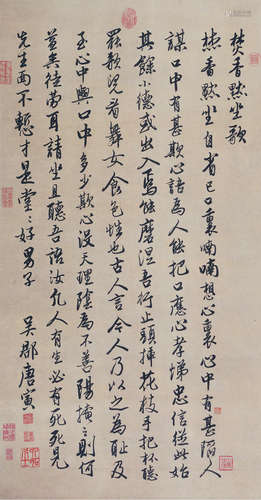 焚香默坐歌
焚香默坐自省己口裏喃喃想心裏心中有甚陷人
謀口中有甚欺心語為人能把口應心孝悌忠信從此始
其餘小德或出入焉能磨涅吾行止頭揷花枝手把杯聽
罷歌児看舞女食色性也古人言今人乃以之為恥及
至心中與口中多少欺心沒天理陰為不善陽掩之則何
益矣徒勞耳請坐且聽吾語汝凡人有生必有死死見
先生面不慙才是堂堂好男子
吳郡唐寅